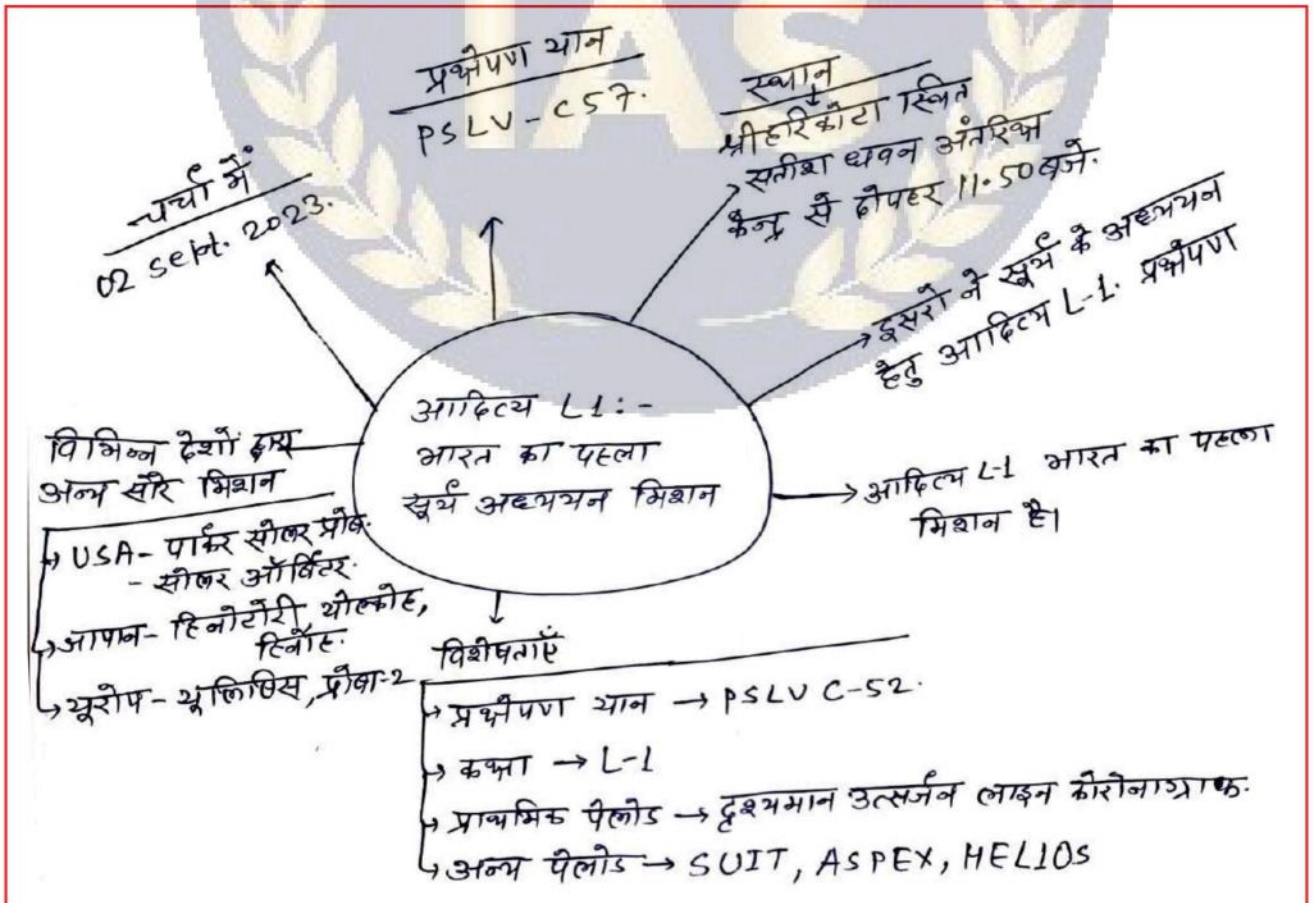 IAS
प्रक्षेपण यान
PSLV-C57.
स्थान
श्रीहरिकोटा स्थित
सतीश धवन अंतरिक्ष
केन्द्र से दोपहर 11.50 बजे.
चर्चा में
02 Sept. 2023.
इसरो ने सूर्य के अध्ययन
हेतु आदित्य L-1. प्रक्षेपण
आदित्य L1:-
भारत का पहला
सूर्य अध्ययन मिशन
आदित्य L-1 भारत का पहला
मिशन है।
विभिन्न देशों द्वारा
अन्य सौर मिशन
USA- पार्कर सोलर प्रोब.
- सोलर ऑर्बिटर.
जापान- हिनोटोरी, योल्कोह,
हिनोह.
यूरोप- यूलिसिस, प्रोबा-2
विशेषताएँ
प्रक्षेपण यान → PSLV C-52.
कक्षा → L-1
प्राथमिक पेलोड → दृश्यमान उत्सर्जन लाइन कोरोनाग्राफ.
अन्य पेलोड → SUIT, ASPEX, HELIOS